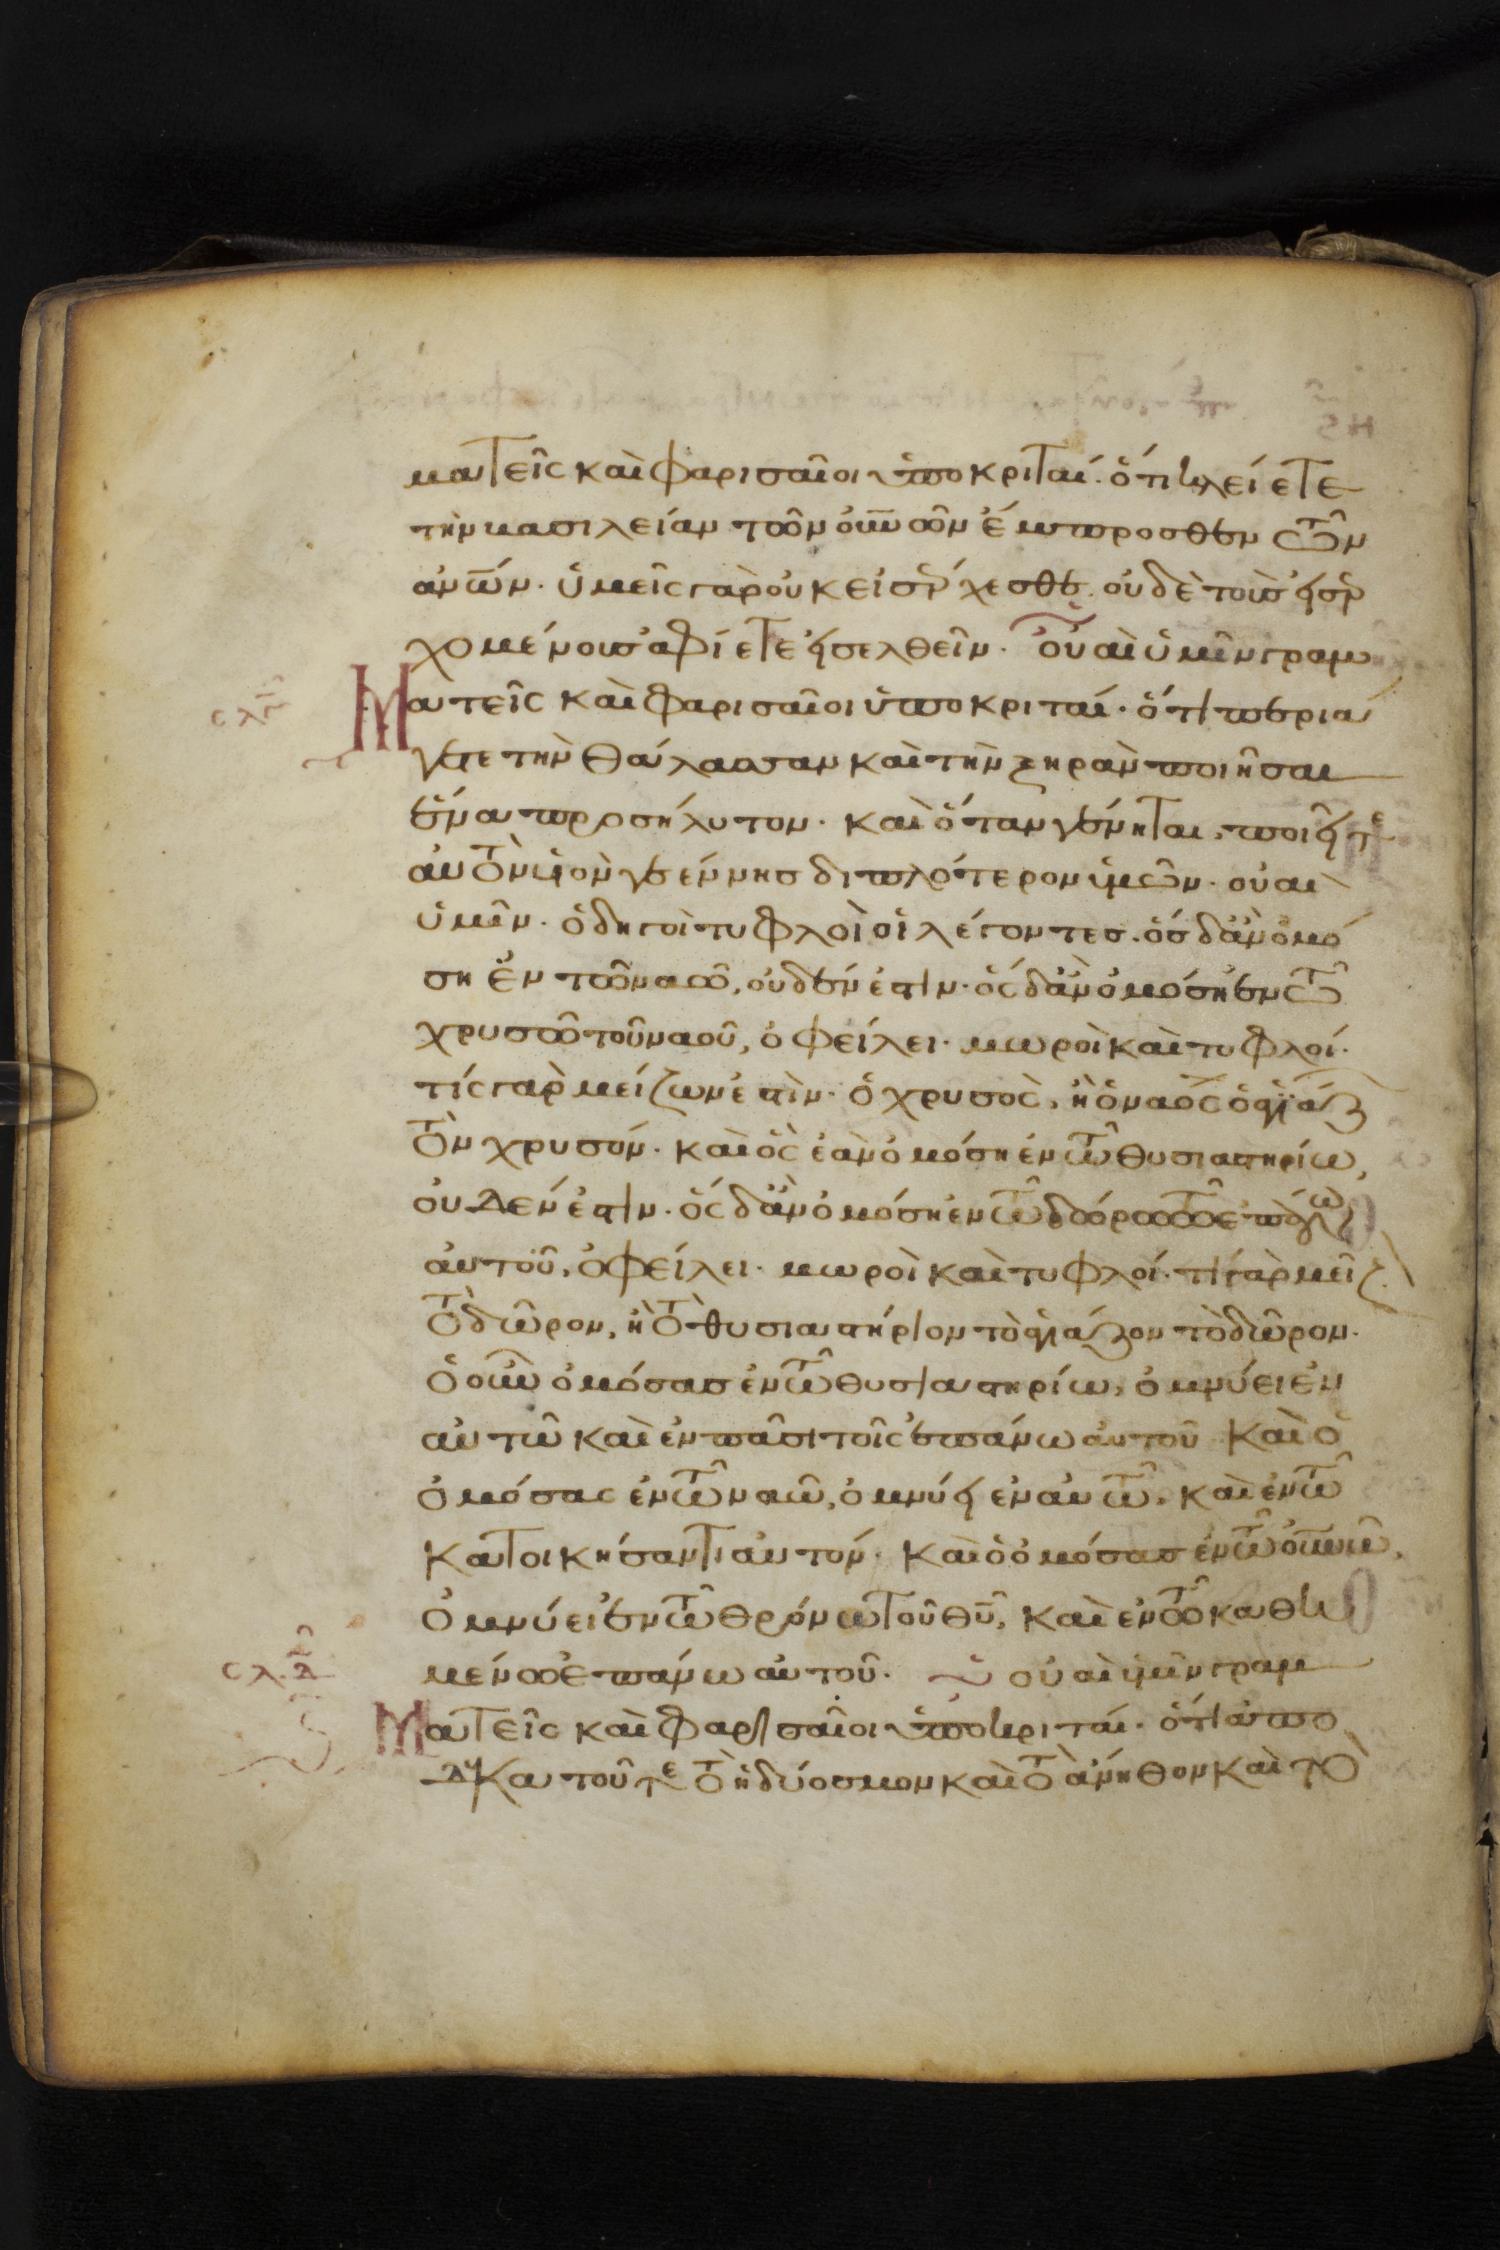 ματεῖς καὶ φαρισαῖοι ὑποκριταί· ὅτι κλείετε
τὴν βασιλείαν τῶν οὐνῶν ἔμπροσθεν τῶν
ἀνῶν· ὑμεῖς γὰρ οὐκ εἰσέρχεσθε· οὐδὲ τοὺσ εἰσερ
χομένουσ ἀφίετε εἰσελθεῖν· οὐαὶ ὑμῖν γραμ
σλγ
ματεῖς καὶ φαρισαῖοι ὑποκριταί· ὅτι περιά
γετε τὴν θάλασσαν καὶ τὴν ξηρὰν ποιῆσαι
ἕνα προσήλυτον· καὶ ὅταν γένηται, ποιεῖτε
αὐτὸν υἱὸν γεέννησ διπλότερον ὑμῶν· οὐαὶ
ὑμῖν· ὁδηγοὶ τυφλοὶ οἱ λέγοντεσ· ὃσ δἂν ὀμό
ση ἐν τῶ ναῶ, οὐδέν ἐστιν· ὃς δἂν ὀμόση ἐν τῶ
χρυσῶ τοῦ ναοῦ, ὀφείλει· μωροὶ καὶ τυφλοί·
τίς γὰρ μείζων ἐστὶν· ὁ χρυσὸς, ἢ ὁ ναὸς ὁ ἁγιάζ
τὸν χρυσόν· καὶ ὃς ἐὰν ὀμόση ἐν τῶ θυσιαστηρίω,
οὐδέν ἐστιν· ὃς δἂν ὀμόση ἐν τῶ δώρω τῶ ἐπάνω
αὐτοῦ, ὀφείλει· μωροὶ καὶ τυφλοί· τί γὰρ μεῖζ
τὸ δῶρον, ἢ τὸ θυσιαστήριον τὸ ἁγιάζον τὸ δῶρον·
ὁ οὖν ὀμόσασ ἐν τῶ θυσιαστηρίω, ὀμνύει ἐν
αὐτῶ καὶ ἐν πᾶσι τοῖς ἐπάνω αὐτοῦ καὶ ὁ
ὀμόσας ἐν τῶ ναῶ, ὀμνύει ἐν αὐτῶ, καὶ ἐν τῶ
κατοικήσαντι αὐτόν· καὶ ὁ ὀμόσασ ἐν τῶ οὐνῶ,
ὀμνύει ἐν τῶ θρόνω τοῦ θῦ, καὶ ἐν τῶ καθη
μένω ἐπάνω αὐτοῦ· οὐαὶ ὑμῖν γραμ
σλδ
ματεῖς καὶ φαρισαῖοι ὑποκριταί· ὅτι ἀπο
δεκατοῦτε τὸ ἡδύοσμον καὶ τὸ ἄνηθον καὶ τὸ